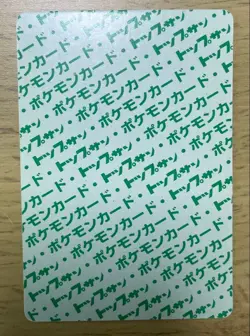 トップサン・
ポケモンカード・
トップサン・ポケモンカード・
ポケモンカード・トップサン・
トップサン・ポケモンカード・
ポケモンカード・トップサン・
トップサン・ポケモンカード・
ポケモンカード・トップサン・
トップサン・ポケモンカード・
ポケモンカード・トップサン・
トップサン・ポケモンカード・
ポケモンカード・トップサン・
トップサン・ポケモンカード
ポケモンカード・
トップサン